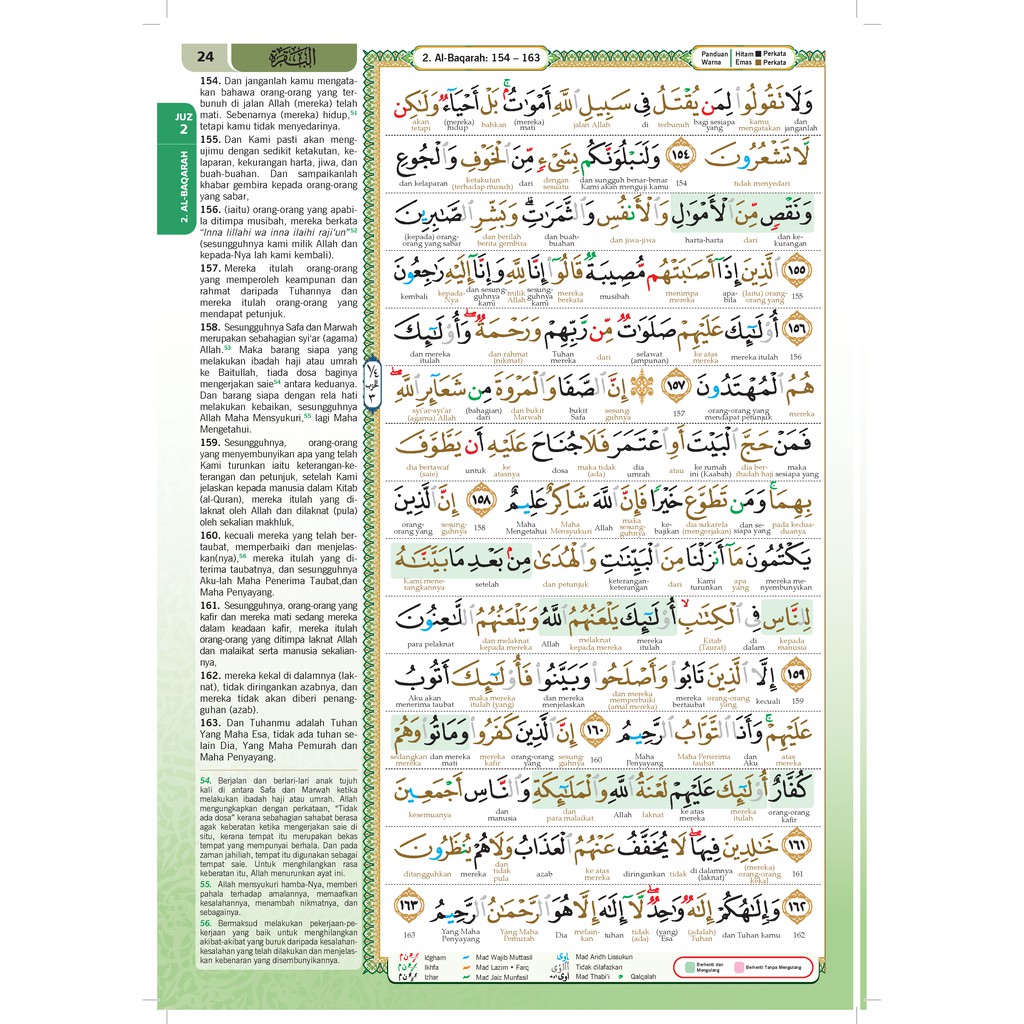 24
البقرة
2. Al-Baqarah: 154 – 163
Panduan Warna
Hitam Perkata
Emas Perkata
JUZ 2
2. AL-BAQARAH
154. Dan janganlah kamu mengata-
kan bahawa orang-orang yang ter-
bunuh di jalan Allah (mereka) telah
mati. Sebenarnya (mereka) hidup,51
tetapi kamu tidak menyedarinya.
155. Dan Kami pasti akan meng-
ujimu dengan sedikit ketakutan, ke-
laparan, kekurangan harta, jiwa, dan
buah-buahan. Dan sampaikanlah
khabar gembira kepada orang-orang
yang sabar,
156. (iaitu) orang-orang yang apabi-
la ditimpa musibah, mereka berkata
“Inna lillahi wa inna ilaihi raji‘un”52
(sesungguhnya kami milik Allah dan
kepada-Nya lah kami kembali).
157. Mereka itulah orang-orang
yang memperoleh keampunan dan
rahmat daripada Tuhannya dan
mereka itulah orang-orang yang
mendapat petunjuk.
158. Sesungguhnya Safa dan Marwah
merupakan sebahagian syi'ar (agama)
Allah.53 Maka barang siapa yang
melakukan ibadah haji atau umrah
ke Baitullah, tiada dosa baginya
mengerjakan saie54 antara keduanya.
Dan barang siapa dengan rela hati
melakukan kebaikan, sesungguhnya
Allah Maha Mensyukuri,55 lagi Maha
Mengetahui.
159. Sesungguhnya, orang-orang
yang menyembunyikan apa yang telah
Kami turunkan iaitu keterangan-ke-
terangan dan petunjuk, setelah Kami
jelaskan kepada manusia dalam Kitab
(al-Quran), mereka itulah yang di-
laknat oleh Allah dan dilaknat (pula)
oleh sekalian makhluk,
160. kecuali mereka yang telah ber-
taubat, memperbaiki dan menjelas-
kan(nya),56 mereka itulah yang di-
terima taubatnya, dan sesungguhnya
Aku-lah Maha Penerima Taubat,dan
Maha Penyayang.
161. Sesungguhnya, orang-orang yang
kafir dan mereka mati sedang mereka
dalam keadaan kafir, mereka itulah
orang-orang yang ditimpa laknat Allah
dan malaikat serta manusia sekalian-
nya,
162. mereka kekal di dalamnya (lak-
nat), tidak diringankan azabnya, dan
mereka tidak akan diberi penang-
guhan (azab).
163. Dan Tuhanmu adalah Tuhan
Yang Maha Esa, tidak ada tuhan se-
lain Dia, Yang Maha Pemurah dan
Maha Penyayang.
54. Berjalan dan berlari-lari anak tujuh
kali di antara Safa dan Marwah ketika
melakukan ibadah haji atau umrah. Allah
mengungkapkan dengan perkataan, “Tidak
ada dosa” kerana sebahagian sahabat berasa
agak keberatan ketika mengerjakan saie di
situ, kerana tempat itu merupakan bekas
tempat yang mempunyai berhala. Dan pada
zaman jahiliah, tempat itu digunakan sebagai
tempat saie. Untuk menghilangkan rasa
keberatan itu, Allah menurunkan ayat ini.
55. Allah mensyukuri hamba-Nya, memberi
pahala terhadap amalannya, memaafkan
kesalahannya, menambah nikmatnya, dan
sebagainya.
56. Bermaksud melakukan pekerjaan-pe-
kerjaan yang baik untuk menghilangkan
akibat-akibat yang buruk daripada kesalahan-
kesalahan yang telah dilakukan dan menjelas-
kan kebenaran yang disembunyikannya.
وَلَا تَقُولُوا۟ لِمَن يُقْتَلُ فِى سَبِيلِ ٱللَّهِ أَمْوَٰتٌۢ بَلْ أَحْيَآءٌ وَلَٰكِن
dan janganlah kamu mengatakan bagi sesiapa yang terbunuh di jalan Allah (mereka) mati bahkan (mereka) hidup akan tetapi
لَّا تَشْعُرُونَ ١٥٤ وَلَنَبْلُوَنَّكُم بِشَىْءٍ مِّنَ ٱلْخَوْفِ وَٱلْجُوعِ
tidak menyedari 154 dan sungguh benar-benar Kami akan menguji kamu dengan sesuatu dari ketakutan (terhadap musuh) dan kelaparan
وَنَقْصٍ مِّنَ ٱلْأَمْوَٰلِ وَٱلْأَنفُسِ وَٱلثَّمَرَٰتِ وَبَشِّرِ ٱلصَّٰبِرِينَ
dan ke-kurangan dari harta-harta dan jiwa-jiwa dan buah-buahan dan berilah berita gembira (kepada) orang-orang yang sabar
١٥٥ ٱلَّذِينَ إِذَآ أَصَٰبَتْهُم مُّصِيبَةٌ قَالُوٓا۟ إِنَّا لِلَّهِ وَإِنَّآ إِلَيْهِ رَٰجِعُونَ
155 (Iaitu) orang-orang yang apa-bila menimpa mereka musibah mereka berkata sesung-guhnya kami milik Allah dan sesung-guhnya kami kepada-Nya kembali
١٥٦ أُو۟لَٰٓئِكَ عَلَيْهِمْ صَلَوَٰتٌ مِّن رَّبِّهِمْ وَرَحْمَةٌ وَأُو۟لَٰٓئِكَ
156 mereka itulah ke atas mereka selawat (ampunan) dari Tuhan mereka dan rahmat (nikmat) dan mereka itulah
هُمُ ٱلْمُهْتَدُونَ ١٥٧ إِنَّ ٱلصَّفَا وَٱلْمَرْوَةَ مِن شَعَآئِرِ ٱللَّهِ
mereka orang-orang yang mendapat petunjuk 157 sesung-guhnya bukit Safa dan bukit Marwah (bahagian) dari syi'ar-syi'ar (agama) Allah
فَمَنْ حَجَّ ٱلْبَيْتَ أَوِ ٱعْتَمَرَ فَلَا جُنَاحَ عَلَيْهِ أَن يَطَّوَّفَ
maka sesiapa yang dia ber-ibadah haji ke rumah ini (Kaabah) atau dia umrah maka tidak (ada) dosa ke atasnya untuk dia bertawaf (saie)
بِهِمَا وَمَن تَطَوَّعَ خَيْرًا فَإِنَّ ٱللَّهَ شَاكِرٌ عَلِيمٌ ١٥٨ إِنَّ ٱلَّذِينَ
pada kedua-duanya dan se-siapa yang dia sukarela (mengerjakan) ke-bajikan maka sesung-guhnya Allah Maha Mensyukuri Maha Mengetahui 158 sesung-guhnya orang-orang yang
يَكْتُمُونَ مَآ أَنزَلْنَا مِنَ ٱلْبَيِّنَٰتِ وَٱلْهُدَىٰ مِنۢ بَعْدِ مَا بَيَّنَّٰهُ
mereka me-nyembunyikan apa yang Kami turunkan dari keterangan-keterangan dan petunjuk setelah Kami mene-rangkannya
لِلنَّاسِ فِى ٱلْكِتَٰبِ أُو۟لَٰٓئِكَ يَلْعَنُهُمُ ٱللَّهُ وَيَلْعَنُهُمُ ٱللَّٰعِنُونَ
kepada manusia di dalam Kitab (Taurat) mereka itulah melaknat kepada mereka Allah dan melaknat kepada mereka para pelaknat
١٥٩ إِلَّا ٱلَّذِينَ تَابُوا۟ وَأَصْلَحُوا۟ وَبَيَّنُوا۟ فَأُو۟لَٰٓئِكَ أَتُوبُ
159 kecuali orang-orang yang mereka bertaubat dan mereka memperbaiki (amal mereka) dan mereka menjelaskan maka mereka itulah (yang) Aku akan menerima taubat
عَلَيْهِمْ وَأَنَا ٱلتَّوَّابُ ٱلرَّحِيمُ ١٦٠ إِنَّ ٱلَّذِينَ كَفَرُوا۟ وَمَاتُوا۟ وَهُمْ
atas mereka dan Aku Maha Penerima taubat Maha Penyayang 160 sesung-guhnya orang-orang yang mereka kafir dan mereka mati sedangkan mereka
كُفَّارٌ أُو۟لَٰٓئِكَ عَلَيْهِمْ لَعْنَةُ ٱللَّهِ وَٱلْمَلَٰٓئِكَةِ وَٱلنَّاسِ أَجْمَعِينَ
orang-orang kafir mereka itulah ke atas mereka laknat Allah dan para malaikat dan manusia kesemuanya
١٦١ خَٰلِدِينَ فِيهَا لَا يُخَفَّفُ عَنْهُمُ ٱلْعَذَابُ وَلَا هُمْ يُنظَرُونَ
161 (mereka) orang-orang kekal di dalamnya (laknat) tidak diringankan ke atas mereka azab dan tidak pula mereka ditangguhkan
١٦٢ وَإِلَٰهُكُمْ إِلَٰهٌ وَٰحِدٌ لَّآ إِلَٰهَ إِلَّا هُوَ ٱلرَّحْمَٰنُ ٱلرَّحِيمُ ١٦٣
162 dan Tuhan kamu (adalah) Tuhan (yang) Esa tidak (ada) tuhan melain-kan Dia Yang Maha Pemurah Yang Maha Penyayang 163
Idgham
Ikhfa
Izhar
Mad Wajib Muttasil
Mad Lazim • Farq
Mad Jaiz Munfasil
Mad Aridh Lissukun
Tidak dilafazkan
Mad Thabi'i
Qalqalah
Berhenti dan Mengulang
Berhenti Tanpa Mengulang